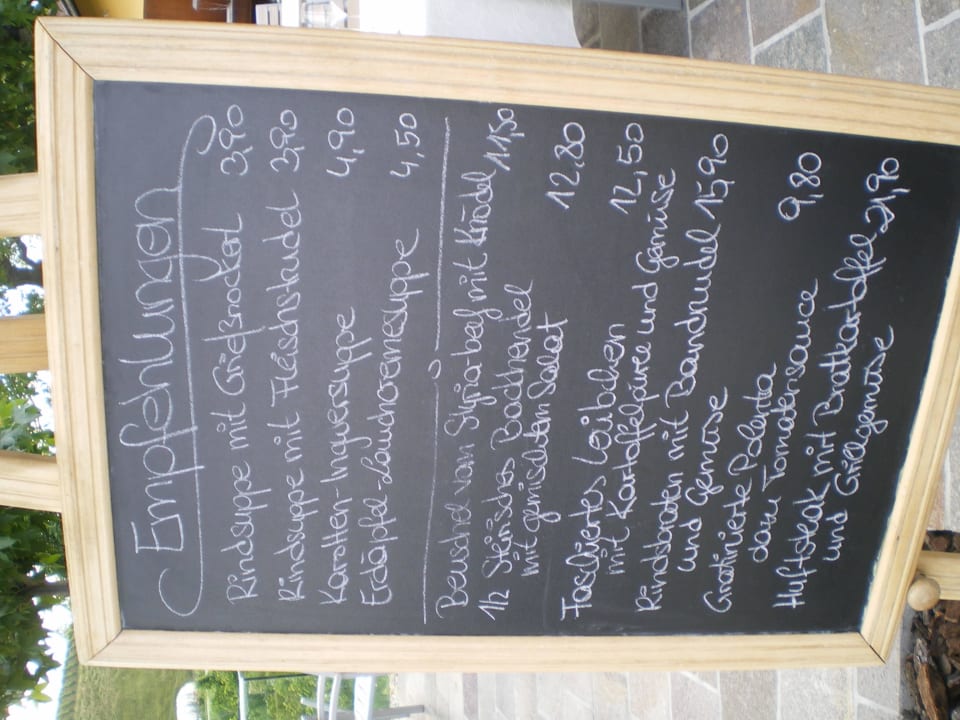 Empfehlungen
Rindsuppe mit Grießnockerl 3,90
Rindsuppe mit Fleischstrudel 3,90
Karotten-Ingwersuppe 4,90
Erdäpfel-Lauchcremesuppe 4,50
Beuschel vom Styria-beef mit Knödel 11,50
1/2 Steirisches Backhendel
mit gemischten Salat 12,80
Faschiertes Laibchen
mit Kartoffelpüree und Gemüse 12,50
Rindsbraten mit Bandnudel
und Gemüse 15,90
Gratinierte Polenta
dazu Tomatensauce 9,80
Huftsteak mit Bratkartoffel
und Grillgemüse 21,90